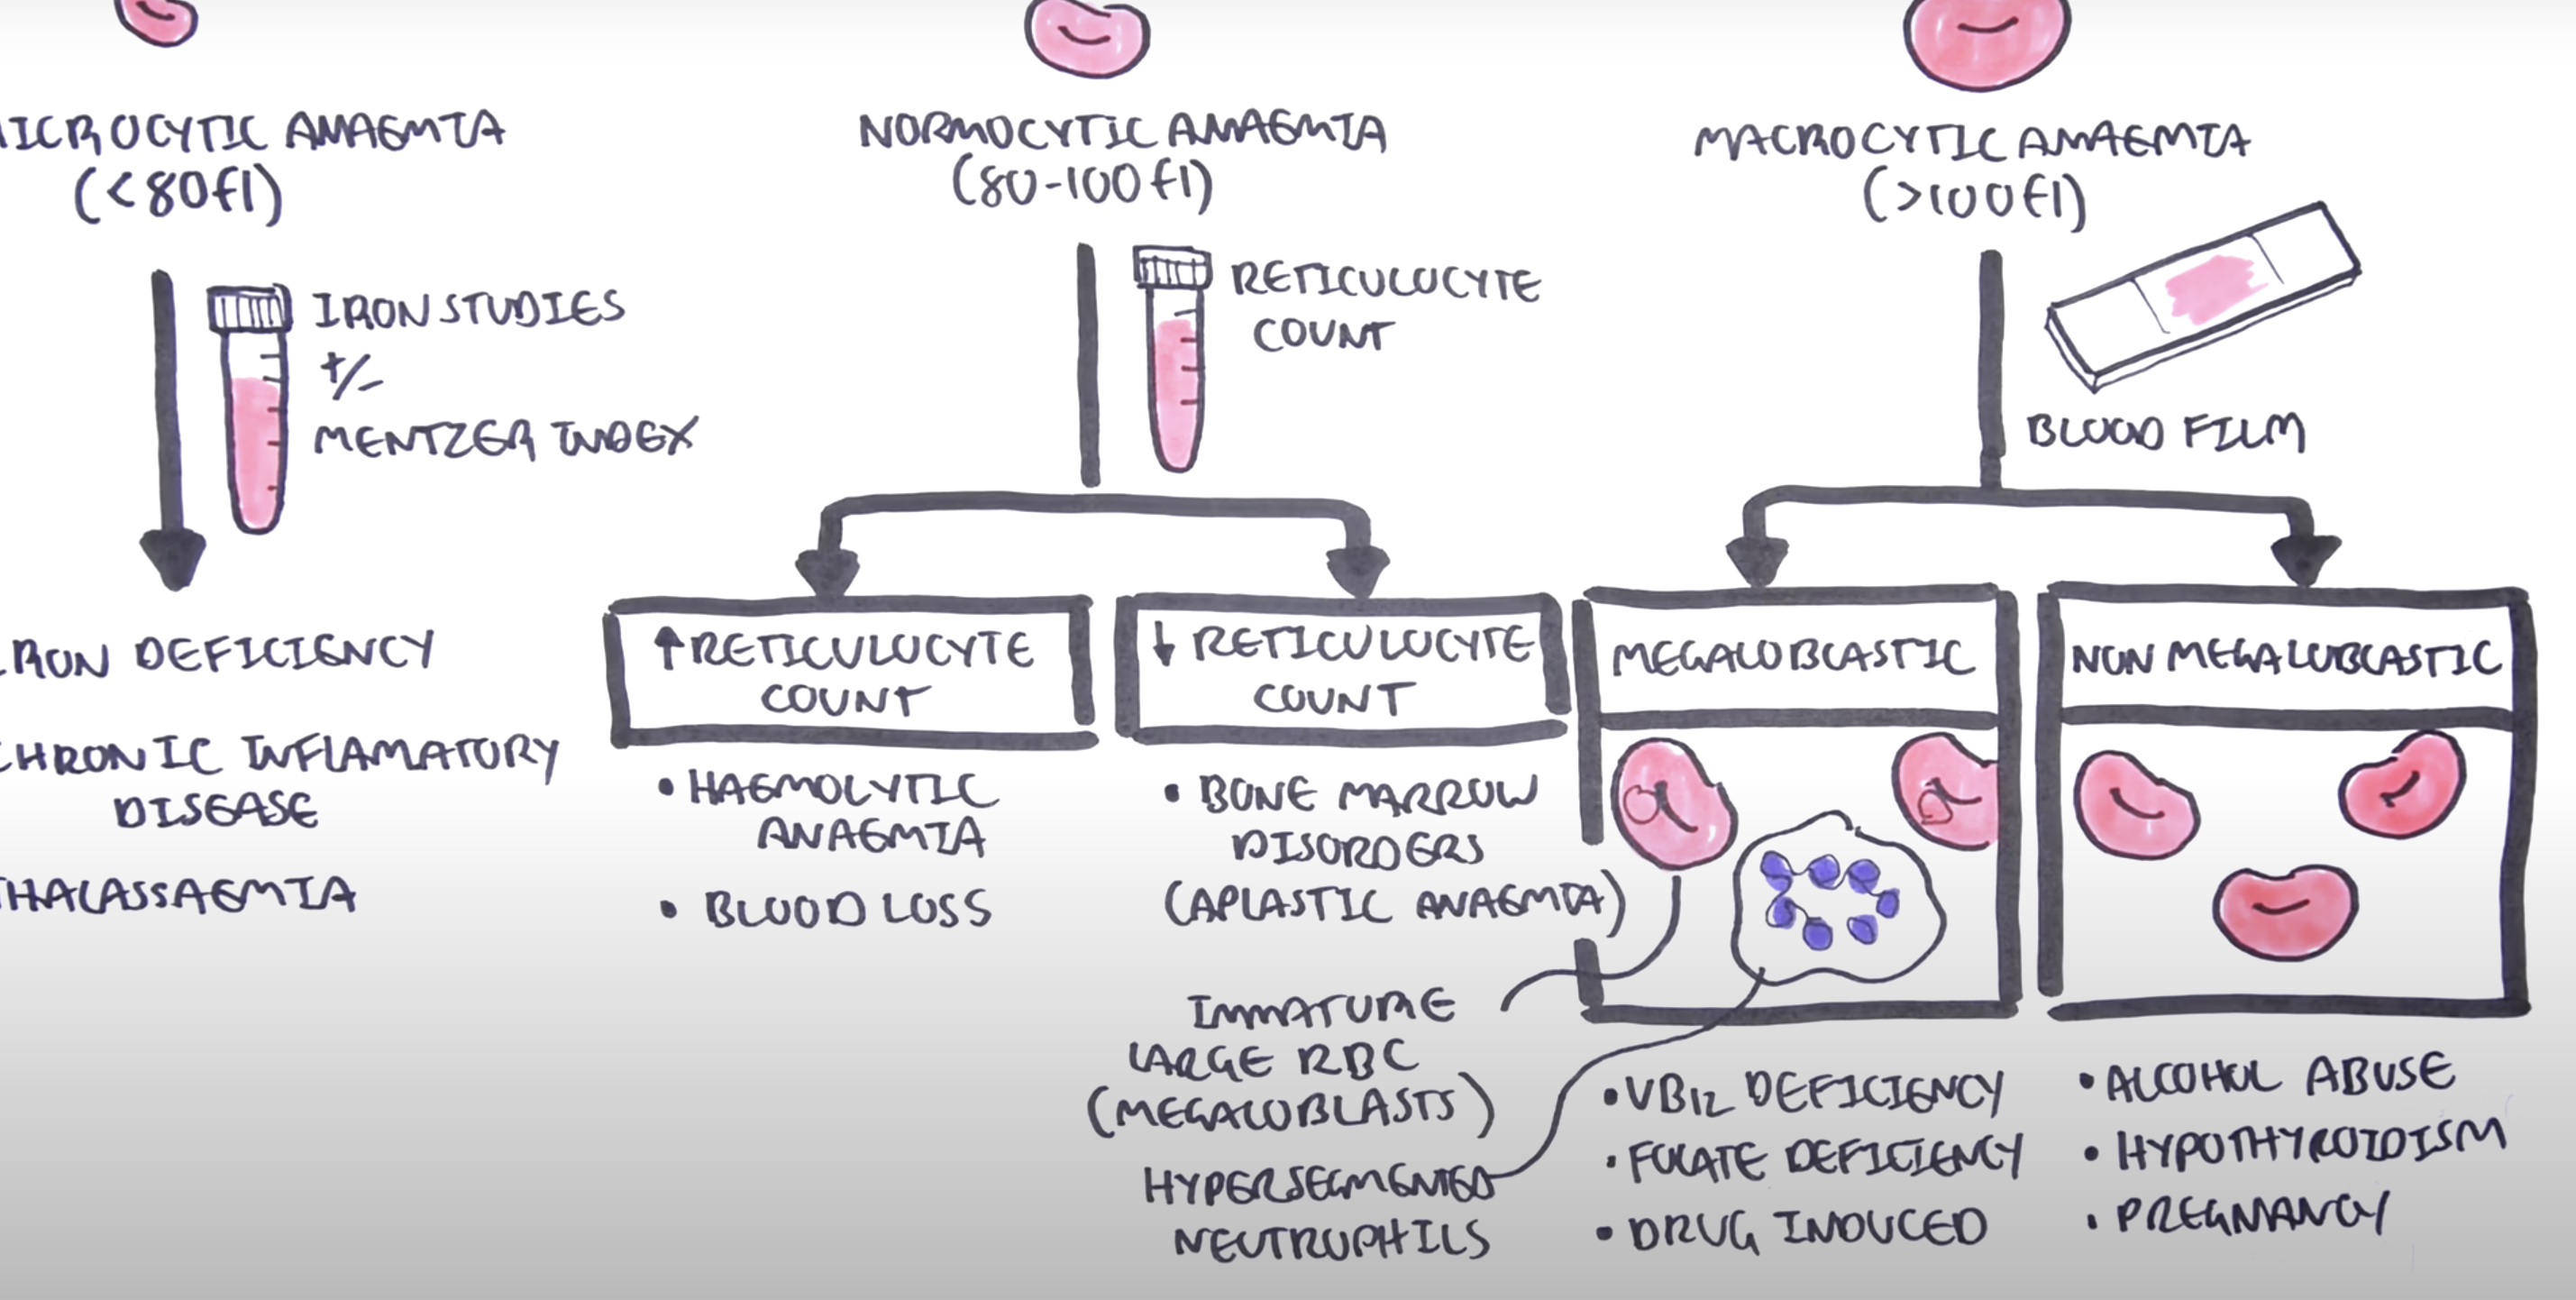 MICROCYTIC ANAEMIA
(<80fl)
IRON STUDIES
+/-
MENTZER INDEX
IRON DEFICIENCY
CHRONIC INFLAMATORY
DISEASE
THALASSAEMIA
NORMOCYTIC ANAEMIA
(80-100fl)
RETICULOCYTE
COUNT
↑ RETICULOCYTE
COUNT
• HAEMOLYTIC
ANAEMIA
• BLOOD LOSS
↓ RETICULOCYTE
COUNT
• BONE MARROW
DISORDERS
(APLASTIC ANAEMIA)
MACROCYTIC ANAEMIA
(>100fl)
BLOOD FILM
MEGALOBLASTIC
IMMATURE
LARGE RBC
(MEGALOBLASTS)
HYPERSEGMENTED
NEUTROPHILS
• VB12 DEFICIENCY
• FOLATE DEFICIENCY
• DRUG INDUCED
NON MEGALOBLASTIC
• ALCOHOL ABUSE
• HYPOTHYROIDISM
• PREGNANCY